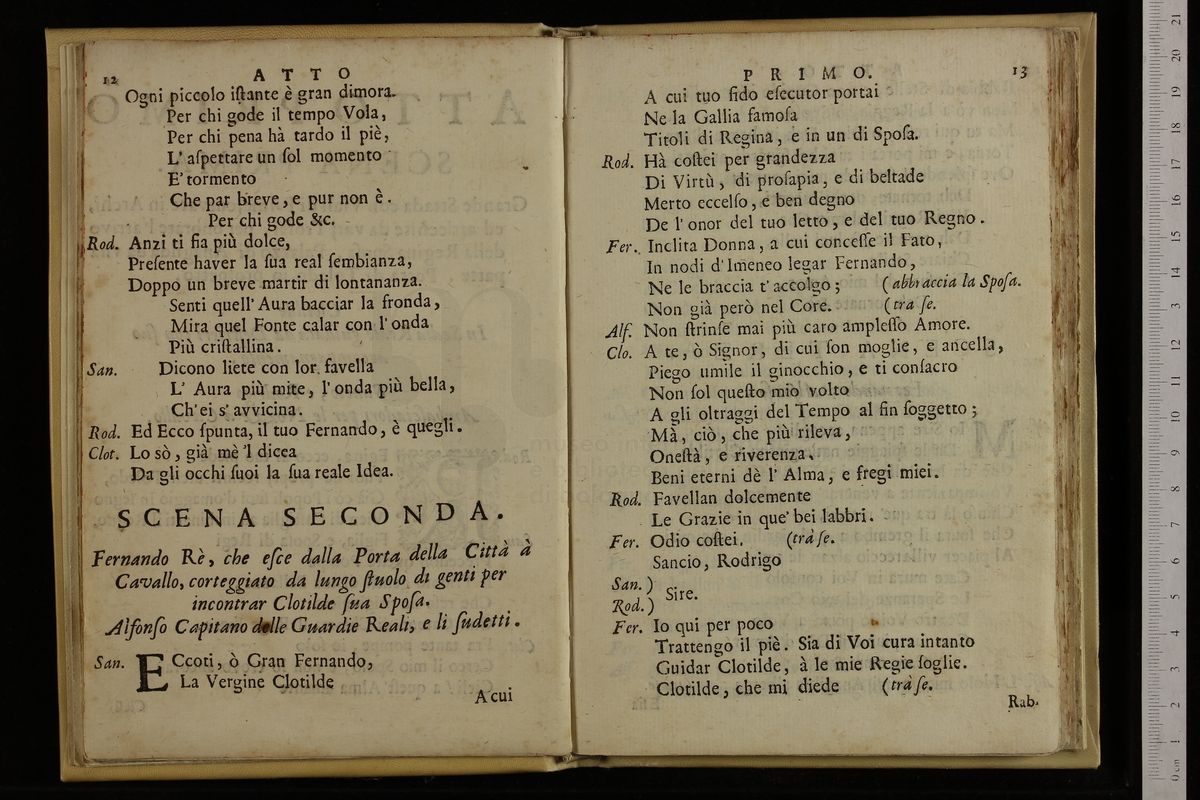 12
ATTO
Ogni piccolo iſtante è gran dimora.
Per chi gode il tempo Vola,
Per chi pena hà tardo il piè,
L' aſpettare un ſol momento
E' tormento
Che par breve, e pur non è.
Per chi gode &c.
Rod. Anzi ti ſia più dolce,
Preſente haver la ſua real ſembianza,
Doppo un breve martir di lontananza.
Senti quell' Aura bacciar la fronda,
Mira quel Fonte calar con l' onda
Più criſtallina.
San. Dicono liete con lor favella
L' Aura più mite, l' onda più bella,
Ch' ei s' avvicina.
Rod. Ed Ecco ſpunta, il tuo Fernando, è quegli.
Clot. Lo sò, già mè 'l dicea
Da gli occhi ſuoi la ſua reale Idea.
SCENA SECONDA.
Fernando Rè, che eſce dalla Porta della Città à
Cavallo, corteggiato da lungo ſtuolo di genti per
incontrar Clotilde ſua Spoſa.
Alfonſo Capitano delle Guardie Reali, e li ſudetti.
San. ECcoti, ò Gran Fernando,
La Vergine Clotilde
A cui
PRIMO.
13
A cui tuo fido eſecutor portai
Ne la Gallia famoſa
Titoli di Regina, e in un di Spoſa.
Rod. Hà coſtei per grandezza
Di Virtù, di proſapia, e di beltade
Merto eccelſo, e ben degno
De l' onor del tuo letto, e del tuo Regno.
Fer. Inclita Donna, a cui conceſſe il Fato,
In nodi d' Imeneo legar Fernando,
Ne le braccia t' accolgo; (abbraccia la Spoſa.
Non già però nel Core. (tra ſe.
Alf. Non ſtrinſe mai più caro ampleſſo Amore.
Clo. A te, ò Signor, di cui ſon moglie, e ancella,
Piego umile il ginocchio, e ti conſacro
Non ſol queſto mio volto
A gli oltraggi del Tempo al fin ſoggetto;
Mà, ciò, che più rileva,
Oneſtà, e riverenza.
Beni eterni dè l' Alma, e fregi miei.
Rod. Favellan dolcemente
Le Grazie in que' bei labbri.
Fer. Odio coſtei. (trà ſe.
Sancio, Rodrigo
San. )
Sire.
Rod. )
Fer. Io qui per poco
Trattengo il piè. Sia di Voi cura intanto
Guidar Clotilde, à le mie Regie ſoglie.
Clotilde, che mi diede (trà ſe.
Rab-